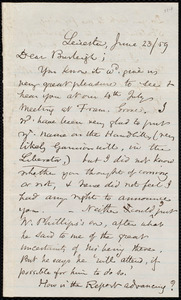 Leicester, June 23/59
Dear Burleigh;
You know it wd. give us
very great pleasure to see &
hear you at our 4th July
Meeting at Fram. Grove. I
wd. have been very glad to put
yr. name on the Handbills, (very
likely Garrison will, in the
Liberator,) but I did not know
whether you thought of coming
or not, & hence did not feel I
had any right to announce
you. Neither could I put
W. Phillips's on, after what
he said to me of the great
uncertainty of his being there
But he says he will attend, if
possible for him to do so.
How is the Report advancing?